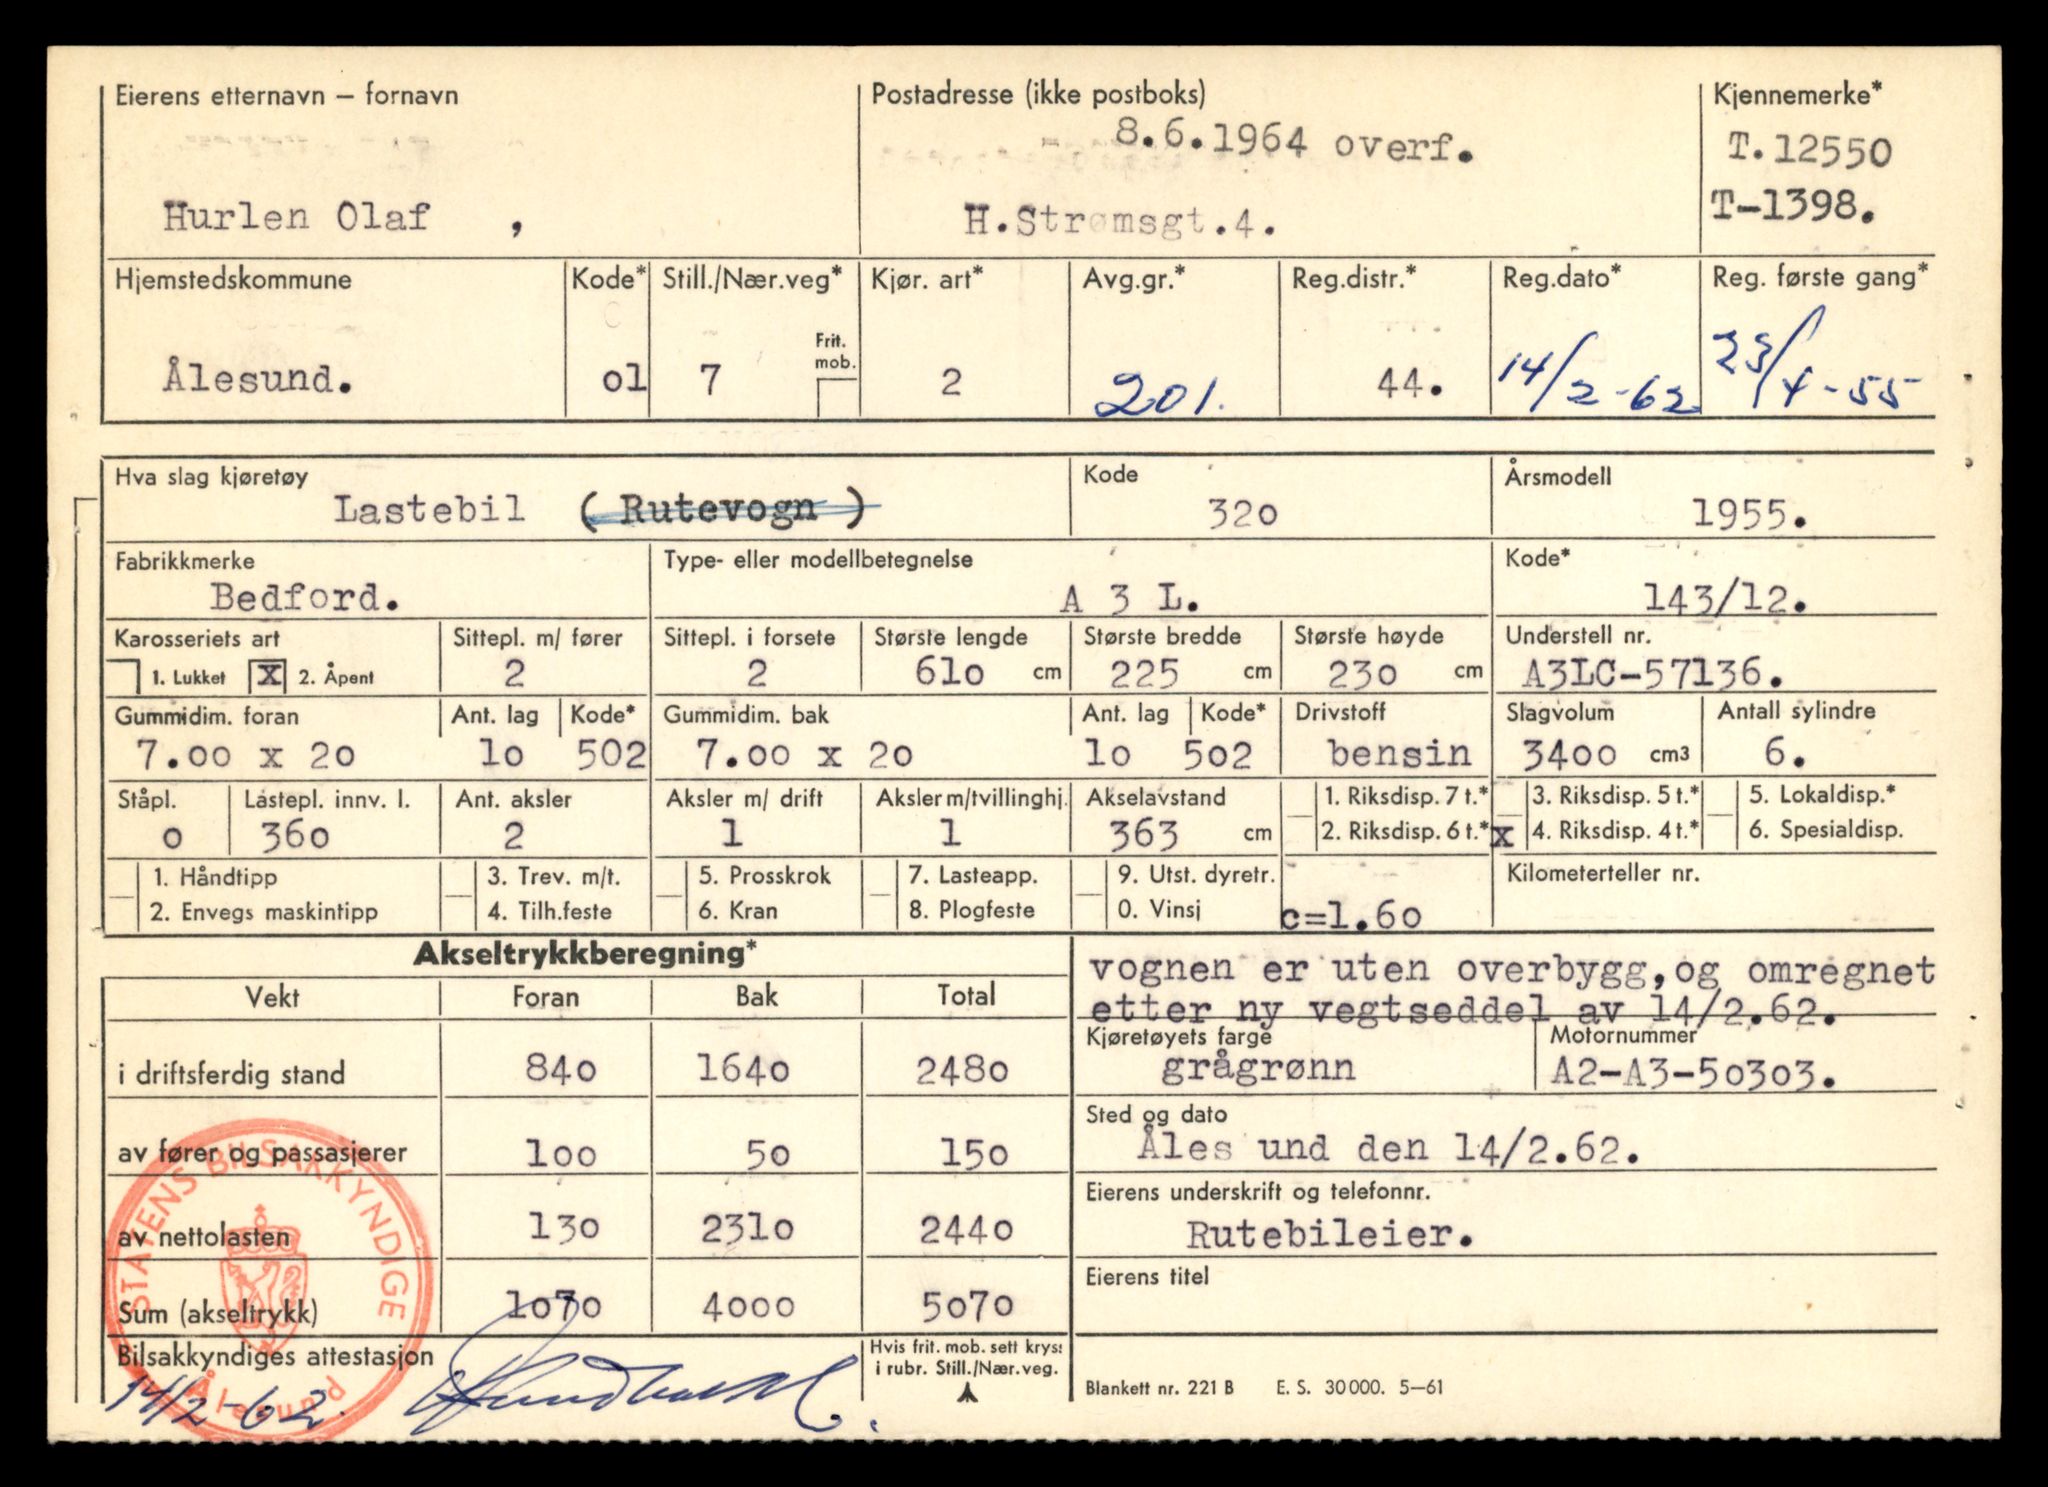 Eierens etternavn – fornavn Postadresse (ikke postboks) Kjennemerke*
8.6.1964 overf. T.12550
Hurlen Olaf , H.Strømsgt.4. T-1398.
Hjemstedskommune Kode* Still./Nær.veg* Kjør. art* Avg.gr.* Reg.distr.* Reg.dato* Reg. første gang*
Frit. mob.
Ålesund. 01 7 2 201. 44. 14/2-62 23/4-55
Hva slag kjøretøy Kode Årsmodell
Lastebil (Rutevogn) 320 1955.
Fabrikkmerke Type- eller modellbetegnelse Kode*
Bedford. A 3 L. 143/12.
Karosseriets art Sittepl. m/ fører Sittepl. i forsete Største lengde Største bredde Største høyde Understell nr.
1. Lukket X 2. Åpent 2 2 610 cm 225 cm 230 cm A3LC-57136.
Gummidim. foran Ant. lag Kode* Gummidim. bak Ant. lag Kode* Drivstoff Slagvolum Antall sylindre
7.00 x 20 10 502 7.00 x 20 10 502 bensin 3400 cm3 6.
Ståpl. Lastepl. innv. l. Ant. aksler Aksler m/ drift Aksler m/tvillinghj. Akselavstand 1. Riksdisp. 7 t.* 3. Riksdisp. 5 t.* 5. Lokaldisp.*
0 360 2 1 1 363 cm 2. Riksdisp. 6 t.* x 4. Riksdisp. 4 t.* 6. Spesialdisp.
1. Håndtipp 3. Trev. m/t. 5. Prosskrok 7. Lasteapp. 9. Utst. dyretr. Kilometerteller nr.
2. Envegs maskintipp 4. Tilh.feste 6. Kran 8. Plogfeste 0. Vinsj c=1.60
Akseltrykkberegning*
vognen er uten overbygg,og omregnet
etter ny vegtseddel av 14/2.62.
Vekt Foran Bak Total
Kjøretøyets farge Motornummer
i driftsferdig stand 840 1640 2480 grågrønn A2-A3-50303.
Sted og dato
av fører og passasjerer 100 50 150 Åles und den 14/2.62.
Eierens underskrift og telefonnr.
av nettolasten 130 2310 2440 Rutebileier.
Eierens titel
Sum (akseltrykk) 1070 4000 5070
STATENS BILSAKKYNDIGE
Ålesund
Bilsakkyndiges attestasjon Hvis frit. mob. sett kryss
i rubr. Still./Nær.veg.
14/2-62.
Blankett nr. 221 B E. S. 30000. 5–61